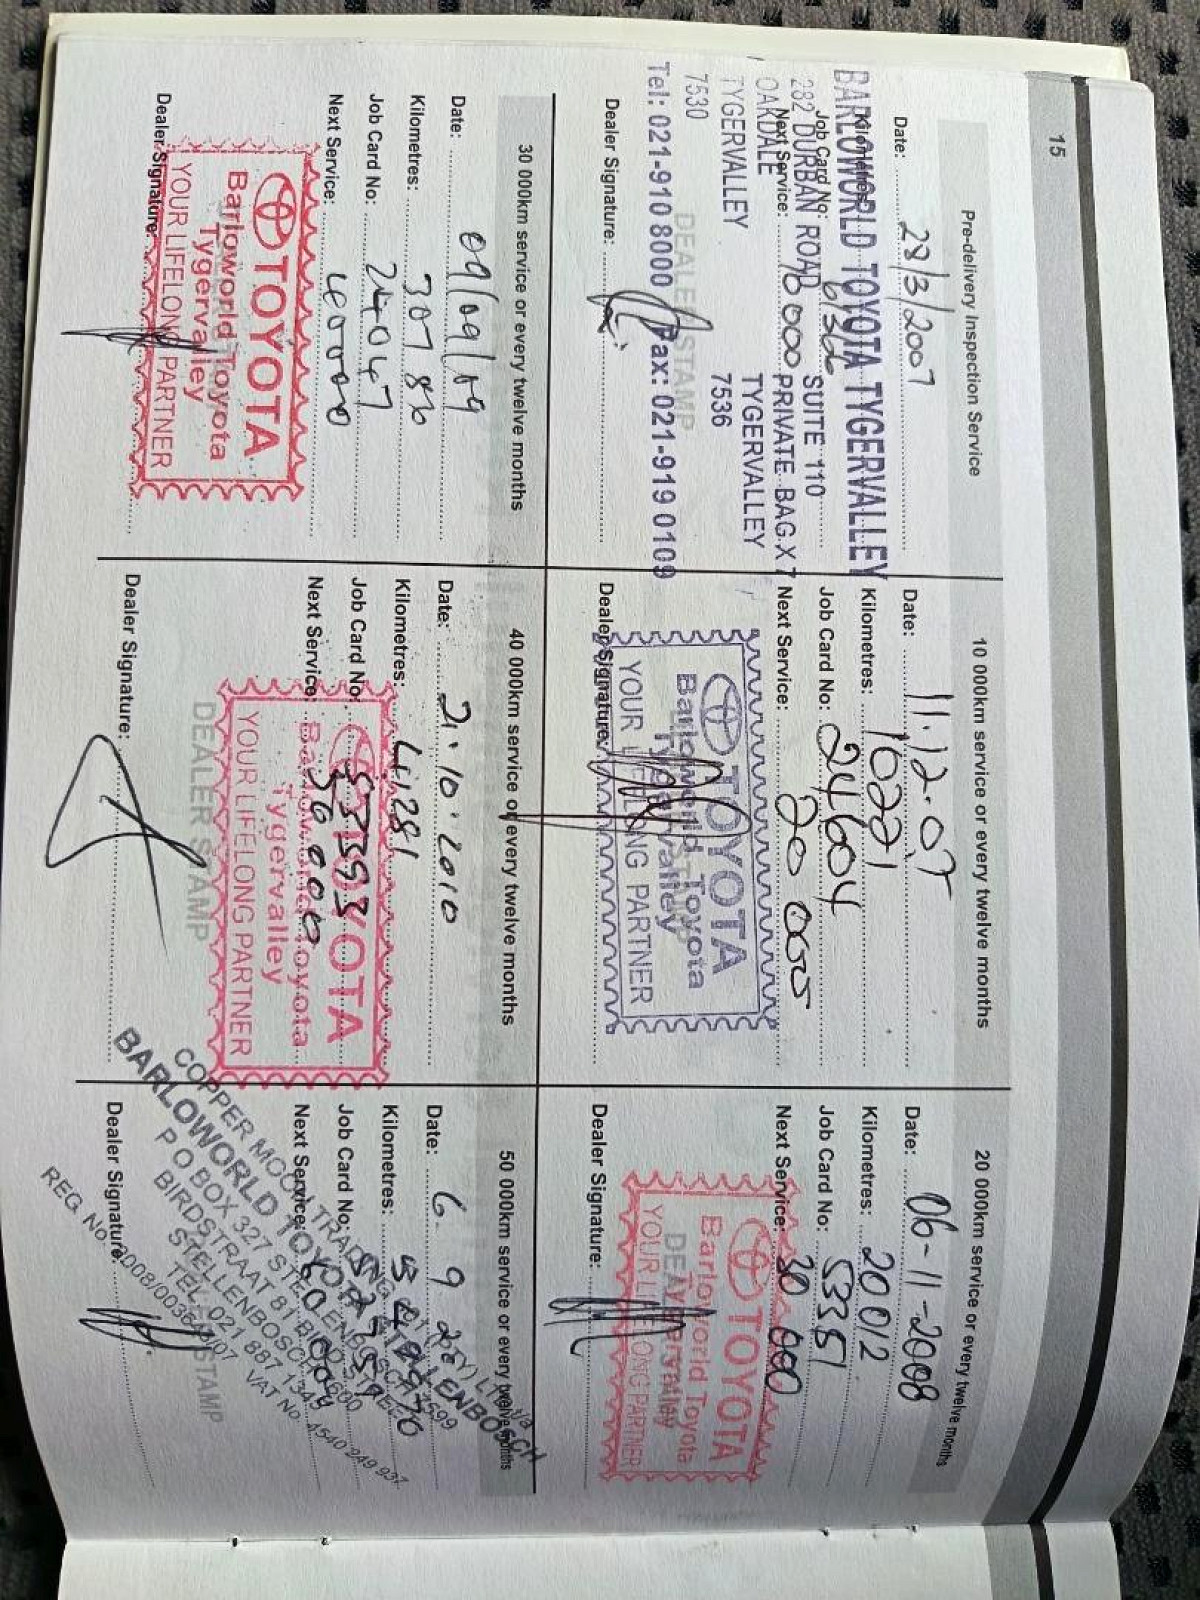 15
Pre-delivery Inspection Service
Date: 28/3/2007
Kilometres:
Job Card No:
Next Service: 10 000
BARLOWORLD TOYOTA TYGERVALLEY
282 DURBAN ROAD
OAKDALE
TYGERVALLEY
7530
SUITE 110
PRIVATE BAG X 7
TYGERVALLEY
7536
Tel: 021-910 8000 Fax: 021-919 0109
DEALER STAMP
Dealer Signature:
10 000km service or every twelve months
Date: 11.12.07
Kilometres: 10221
Job Card No: 24604
Next Service: 20 000
TOYOTA
Barloworld Toyota
Tygervalley
YOUR LIFELONG PARTNER
Dealer Signature:
20 000km service or every twelve months
Date: 06-11-2008
Kilometres: 20012
Job Card No: 53351
Next Service: 30 000
TOYOTA
Barloworld Toyota
Tygervalley
YOUR LIFELONG PARTNER
Dealer Signature:
30 000km service or every twelve months
Date: 09/09/09
Kilometres: 30786
Job Card No: 24047
Next Service: 40000
TOYOTA
Barloworld Toyota
Tygervalley
YOUR LIFELONG PARTNER
Dealer Signature:
40 000km service or every twelve months
Date: 21.10.2010
Kilometres: 41281
Job Card No:
Next Service: 56000
TOYOTA
Barloworld Toyota
Tygervalley
YOUR LIFELONG PARTNER
DEALER STAMP
Dealer Signature:
50 000km service or every twelve months
Date: 6 9
Kilometres:
Job Card No.
Next Service:
COPPER MOON TRADING (PTY) Ltd t/a
BARLOWORLD TOYOTA STELLENBOSCH
P O BOX 327 STELLENBOSCH 7599
BIRDSTRAAT 81 BIRD STREET
STELLENBOSCH 7600
TEL. 021 887 1345
VAT No. 4540 249 937
STAMP
Dealer Signature: